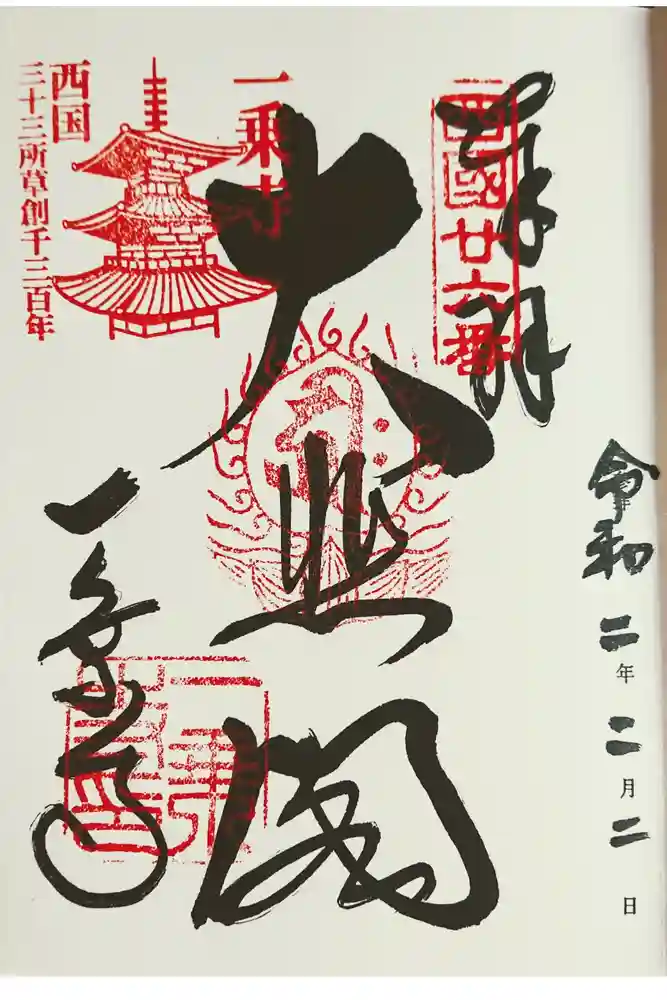 奉拝
西國廿六番
令和二年二月二日
大悲閣
一乗寺
一乗寺
西国
三十三所草創千三百年